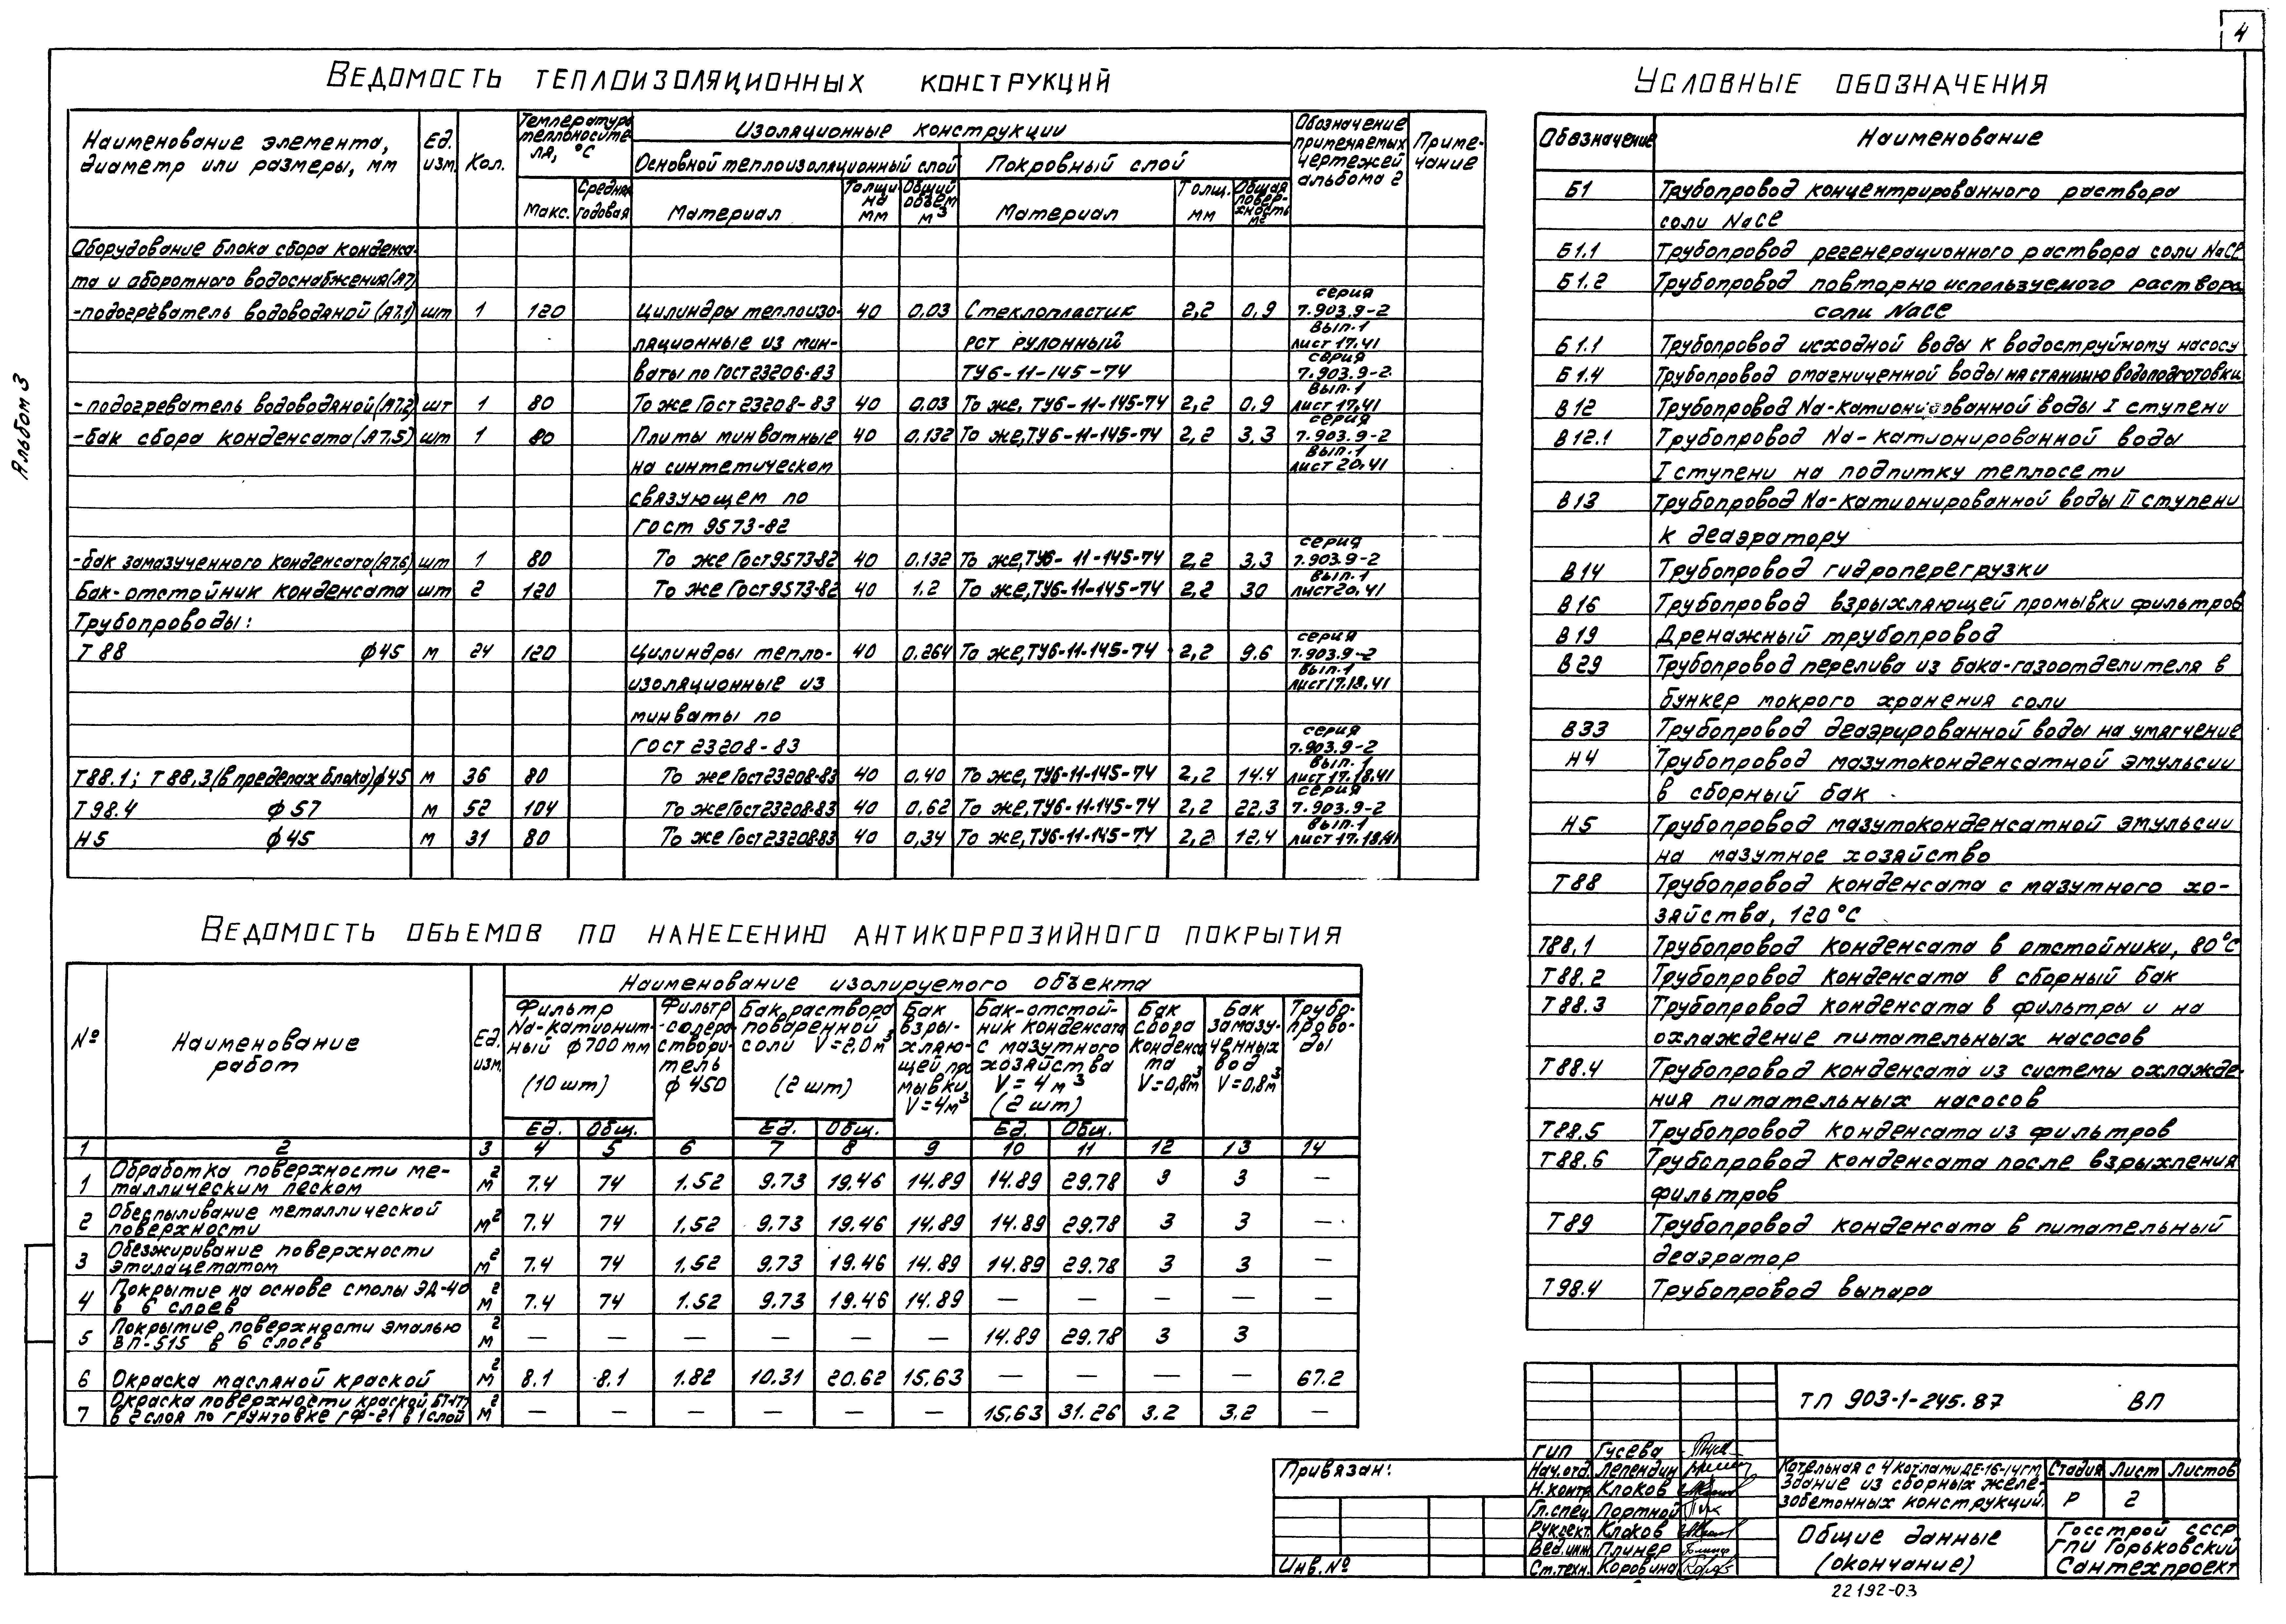 4
Альбом 3
Ведомость теплоизоляционных конструкций
Наименование элемента, диаметр или размеры, мм | Ед. изм. | Кол. | Температура теплоносителя, °С | Изоляционные конструкции | Обозначение применяемых чертежей альбома 2 | Примечание
Основной теплоизоляционный слой | Покровный слой
Макс. | Средняя годовая | Материал | Толщина мм | Общий объем м³ | Материал | Толщ. мм | Общая поверхность м²
Оборудование блока сбора конденса-
та и оборотного водоснабжения (А7)
-подогреватель водоводяной (А7.1) | шт | 1 | 120 | Цилиндры теплоизо- | 40 | 0,03 | Стеклопластик | 2,2 | 0,9 | серия 7.903.9-2
ляционные из мин- | рст рулонный | вып.1 лист 17.41
ваты по Гост 23206-83 | ТУ6-11-145-74 | серия 7.903.9-2
-подогреватель водоводяной (А7.2) | шт | 1 | 80 | То же Гост 23208-83 | 40 | 0.03 | То же, ТУ6-11-145-74 | 2,2 | 0.9 | вып.1 лист 17.41
-бак сбора конденсата (А7.5) | шт | 1 | 80 | Плиты минватные | 40 | 0,132 | То же, ТУ6-11-145-74 | 2,2 | 3,3 | серия 7.903.9-2
на синтетическом | вып.1 лист 20.41
связующем по
Гост 9573-82
-бак замазученного конденсата (А7.6) | шт | 1 | 80 | То же Гост 9573-82 | 40 | 0,132 | То же, ТУ6-11-145-74 | 2,2 | 3,3 | серия 7.903.9-2
Бак-отстойник конденсата | шт | 2 | 120 | То же Гост 9573-82 | 40 | 1.2 | То же, ТУ6-11-145-74 | 2,2 | 30 | вып.1 лист 20.41
Трубопроводы:
Т 88 ф45 | м | 24 | 120 | Цилиндры тепло- | 40 | 0.264 | То же, ТУ6-11-145-74 | 2,2 | 9.6 | серия 7.903.9-2
изоляционные из | вып.1 лист 17.18.41
минваты по
Гост 23208-83
Т88.1; Т88.3 (в пределах блока) ф45 | м | 36 | 80 | То же Гост 23208-83 | 40 | 0.40 | То же, ТУ6-11-145-74 | 2,2 | 14.4 | серия 7.903.9-2 вып.1 лист 17.18.41
Т98.4 ф57 | м | 52 | 104 | То же Гост 23208-83 | 40 | 0,62 | То же, ТУ6-11-145-74 | 2,2 | 22,3 | серия 7.903.9-2
Н5 ф45 | м | 31 | 80 | То же Гост 23208-83 | 40 | 0,34 | То же, ТУ6-11-145-74 | 2,2 | 12,4 | вып.1 лист 17.18.41
Ведомость обьемов по нанесению антикоррозийного покрытия
№ | Наименование работ | Ед. изм. | Наименование изолируемого объекта
Фильтр Na-катионитный ф700 мм (10 шт) | Фильтр-солерастворитель ф 450 | Бак раствора поваренной соли V=2,0м³ (2 шт) | Бак взрыхляющей промывки, V=4м³ | Бак-отстойник конденсата с мазутного хозяйства V=4м³ (2 шт) | Бак сбора конденсата V=0,8м³ | Бак замазученных вод V=0,8м³ | Трубопроводы
Ед. | Общ. | Ед. | Общ. | Ед. | Общ.
1 | 2 | 3 | 4 | 5 | 6 | 7 | 8 | 9 | 10 | 11 | 12 | 13 | 14
1 | Обработка поверхности металлическим песком | м² | 7.4 | 74 | 1.52 | 9.73 | 19.46 | 14.89 | 14.89 | 29.78 | 3 | 3 | —
2 | Обеспыливание металлической поверхности | м² | 7.4 | 74 | 1,52 | 9,73 | 19.46 | 14,89 | 14.89 | 29.78 | 3 | 3 | —
3 | Обезжиривание поверхности этилацетатом | м² | 7.4 | 74 | 1,52 | 9.73 | 19.46 | 14.89 | 14.89 | 29.78 | 3 | 3 | —
4 | Покрытие на основе смолы ЭД-40 в 6 слоев | м² | 7.4 | 74 | 1.52 | 9.73 | 19.46 | 14.89 | — | — | — | — | —
5 | Покрытие поверхности эмалью ВЛ-515 в 6 слоев | м² | — | — | — | — | — | — | 14.89 | 29.78 | 3 | 3
6 | Окраска масляной краской | м² | 8.1 | 8.1 | 1.82 | 10.31 | 20.62 | 15,63 | — | — | — | — | 67.2
7 | Окраска поверхности краской БТ-177 в 2 слоя по грунтовке ГФ-21 в 1 слой | м² | — | — | — | — | — | — | 15,63 | 31.26 | 3.2 | 3,2 | —
Условные обозначения
Обозначение | Наименование
Б1 | Трубопровод концентрированного раствора
соли NaCl
Б1.1 | Трубопровод регенерационного раствора соли NaCl
Б1.2 | Трубопровод повторно используемого раствора
соли NaCl
Б1.1 | Трубопровод исходной воды к водоструйному насосу
Б1.4 | Трубопровод омагниченной воды на станцию водоподготовки
В12 | Трубопровод Na-катионированной воды I ступени
В12.1 | Трубопровод Na-катионированной воды
I ступени на подпитку теплосети
В13 | Трубопровод Na-катионированной воды II ступени
к деаэратору
В14 | Трубопровод гидроперегрузки
В16 | Трубопровод взрыхляющей промывки фильтров
В19 | Дренажный трубопровод
В29 | Трубопровод перелива из бака-газоотделителя в
бункер мокрого хранения соли
В33 | Трубопровод деаэрированной воды на умягчение
Н4 | Трубопровод мазутоконденсатной эмульсии
в сборный бак
Н5 | Трубопровод мазутоконденсатной эмульсии
на мазутное хозяйство
Т88 | Трубопровод конденсата с мазутного хо-
зяйства, 120°С
Т88.1 | Трубопровод конденсата в отстойники, 80°С
Т88.2 | Трубопровод конденсата в сборный бак
Т88.3 | Трубопровод конденсата в фильтры и на
охлаждение питательных насосов
Т88.4 | Трубопровод конденсата из системы охлажде-
ния питательных насосов
Т88.5 | Трубопровод конденсата из фильтров
Т88.6 | Трубопровод конденсата после взрыхления
фильтров
Т89 | Трубопровод конденсата в питательный
деаэратор
Т98.4 | Трубопровод выпара
ТП 903-1-245.87 ВП
Привязан:
Инв. №
ГИП Гусева
Нач.отд. Лепендин
Н.контр Клоков
Гл.спец Портной
Рук.сект. Клоков
Вед.инж. Плинер
Ст.техн. Коровина
Котельная с 4 котлами ДЕ-16-14ГМ
Здание из сборных желе-
зобетонных конструкций.
Стадия | Лист | Листов
Р | 2
Общие данные
(окончание)
Госстрой СССР
ГПИ Горьковский
Сантехпроект
22192-03